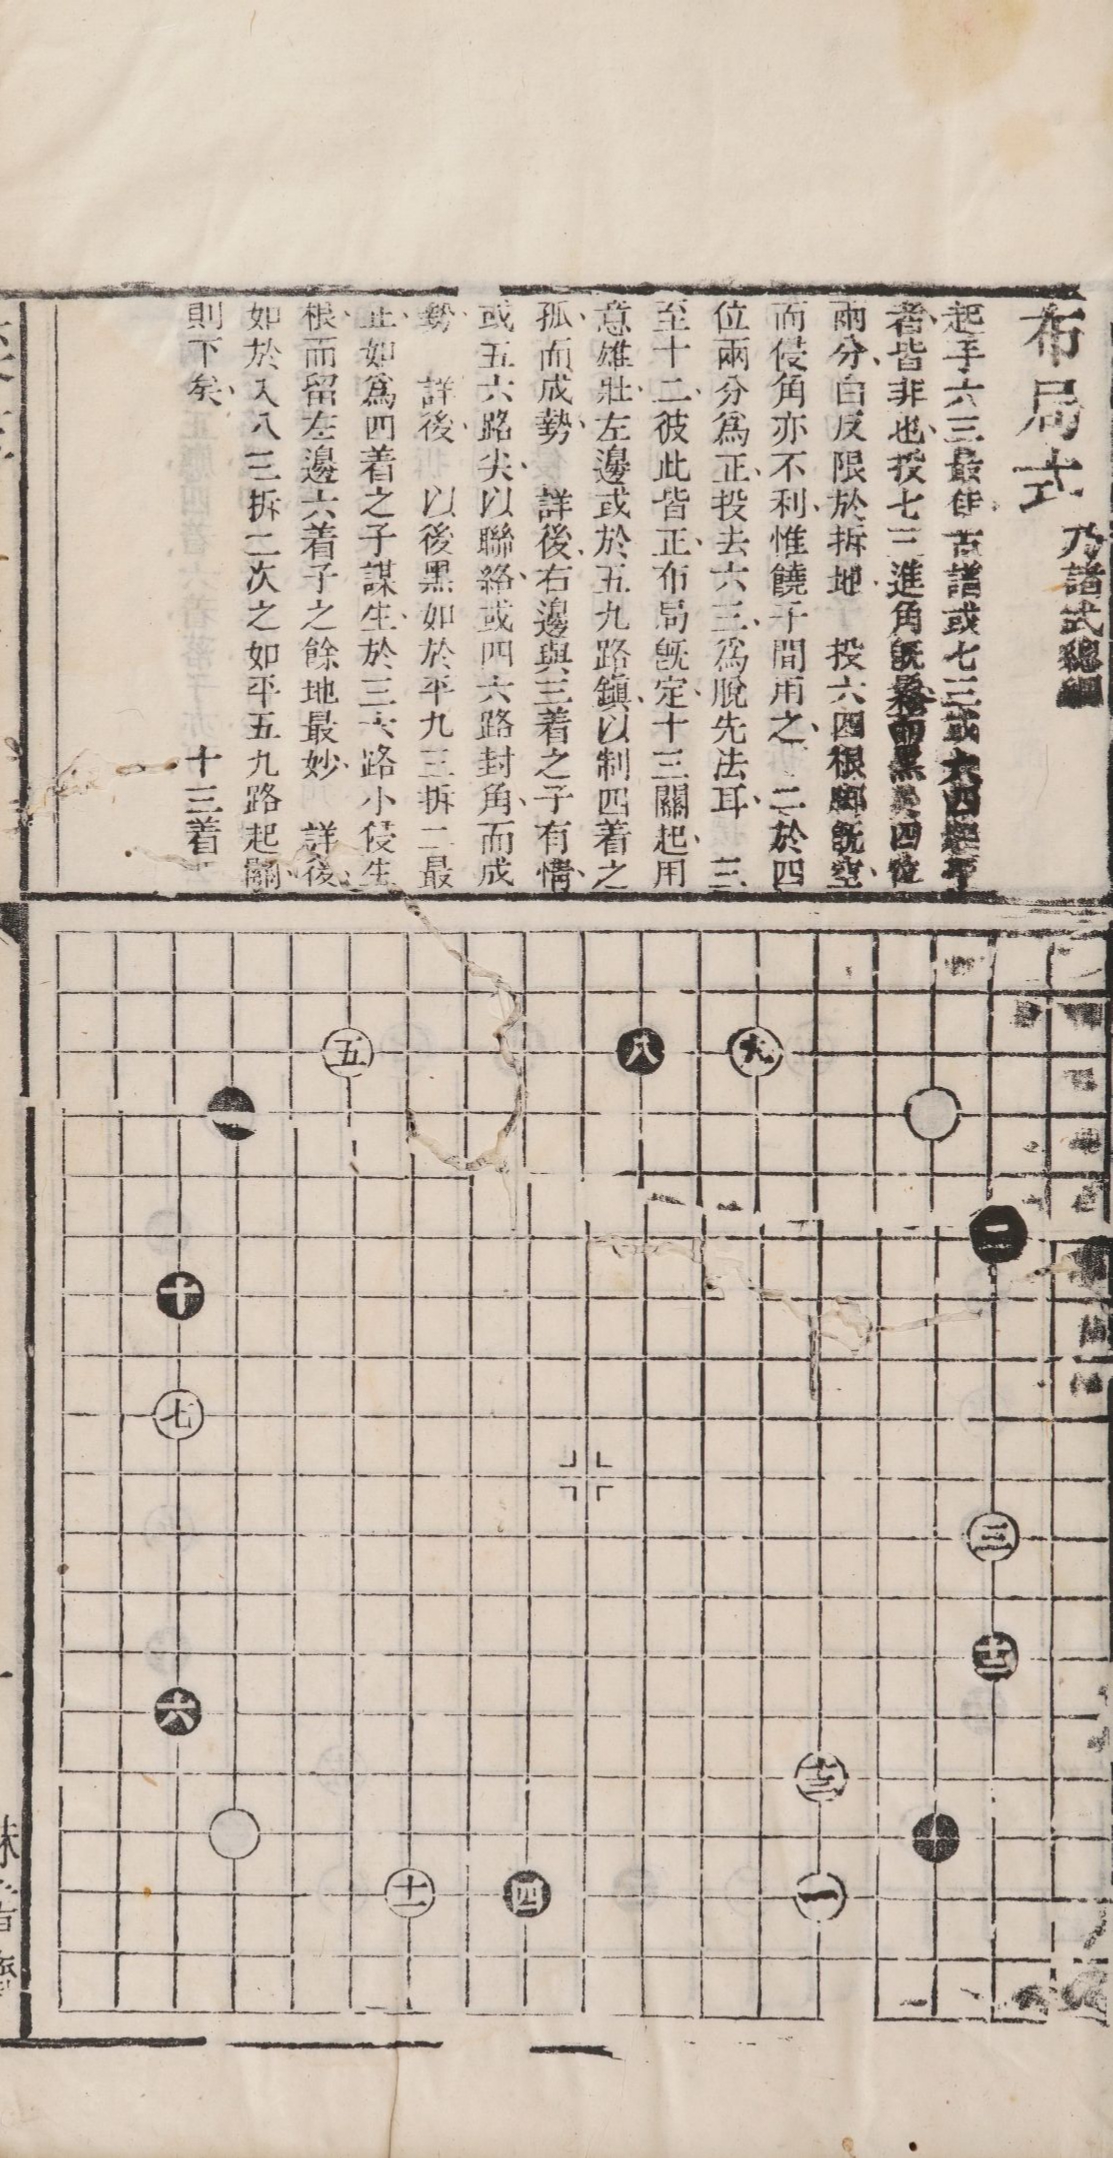 布局式 乃諸式總綱
起手六三最佳古譜或七三或六四起手
者皆非也投七三進角旣鬆而黑四位
兩分白反限於拆地 投六四根脚旣空
而侵角亦不利惟饒子間用之 二於四
位兩分爲正投去六三爲脫先法耳 三
至十二彼此皆正布局旣定十三關起用
意雄壯左邊或於五九路鎮以制四着之
孤而成勢 詳後右邊與三着之子有情
或五六路尖以聯絡或四六路封角而成
勢 詳後 以後黑如於平九三拆二最
正如爲四着之子謀生於三六路小侵生
根而留左邊六着子之餘地最妙 詳後
如於入八三拆二次之如平五九路起關
則下矣 十三着
五
八
九
二
十
七
三
十二
六
十三
十一
四
一